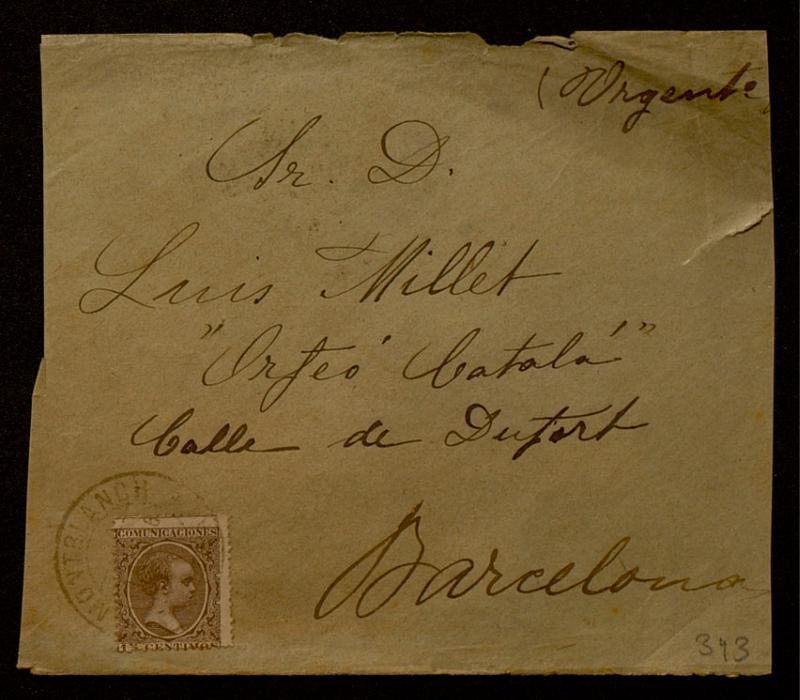 (Urgente
Sr. D.
Luis Millet
"Orfeó Catalá"
Calle de Dufort
Barcelona
MONTBLANCH
COMUNICACIONES
CENTIMOS
343